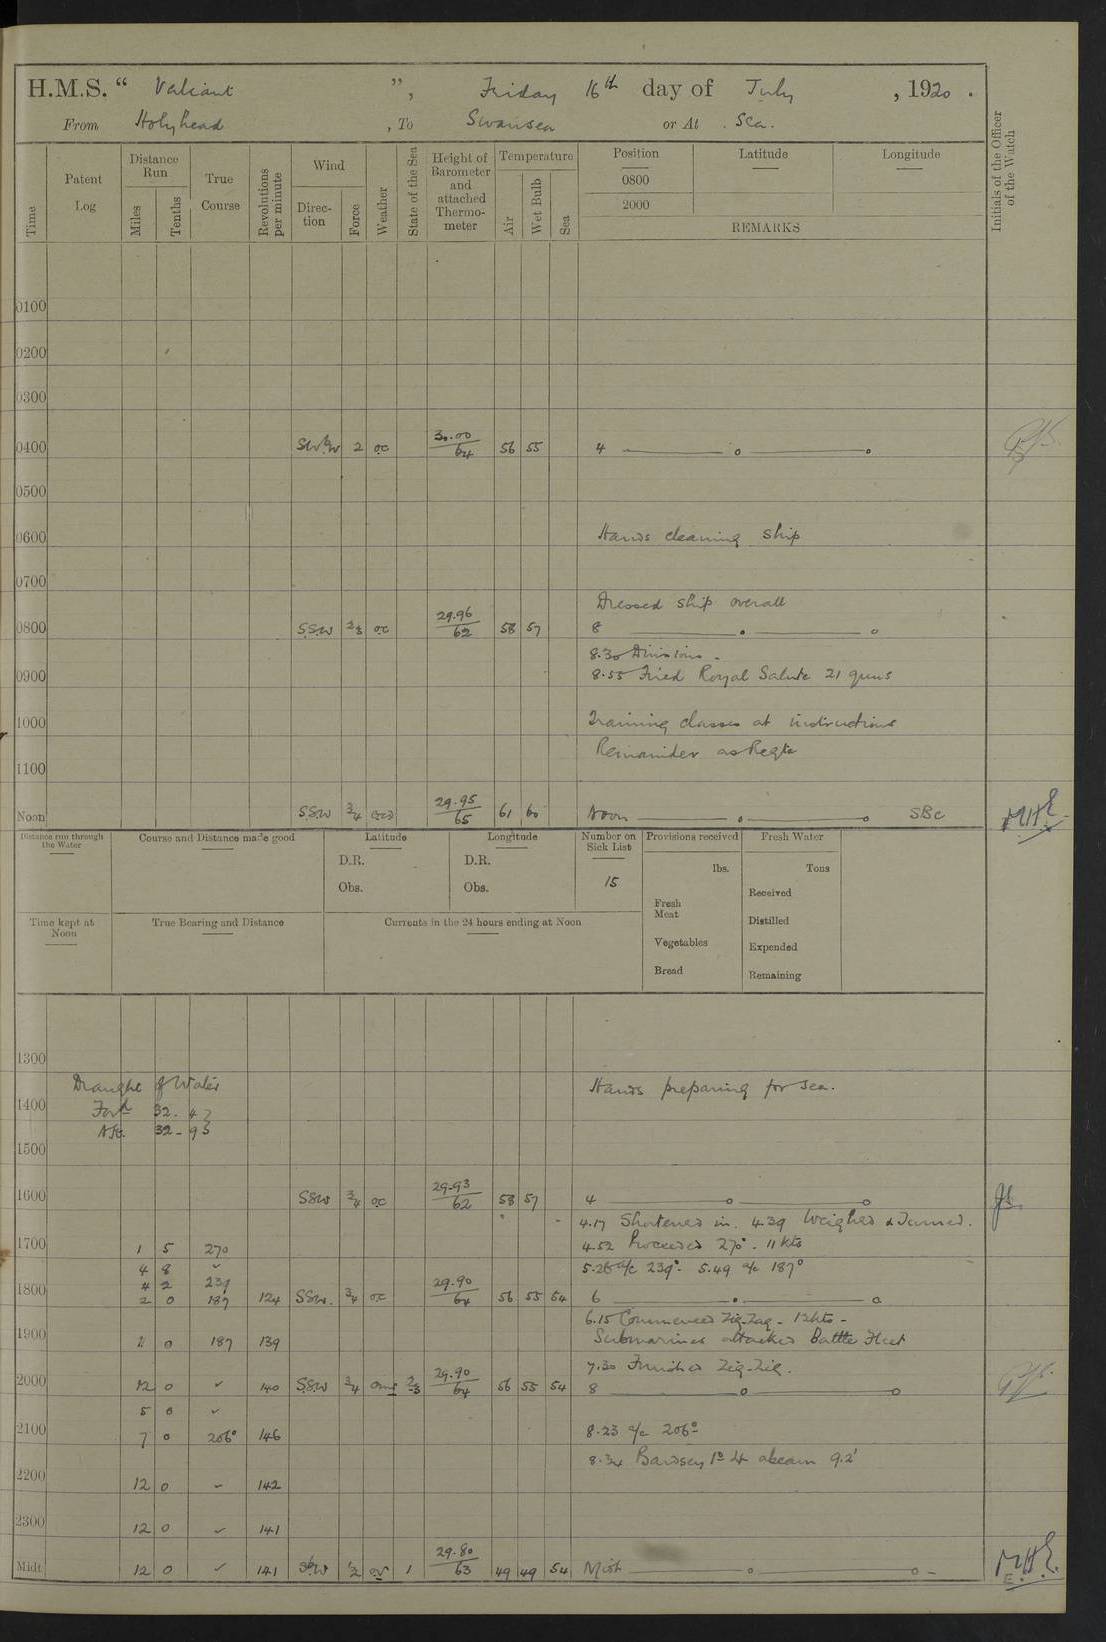 H.M.S. “ Valiant ”, Friday 16th day of July , 1920 .
From Holyhead , To Swansea or At Sea.
Time
Patent Log
Distance Run
Miles
Tenths
True Course
Revolutions per minute
Wind
Direction
Force
Weather
State of the Sea
Height of Barometer and attached Thermometer
Temperature
Air
Wet Bulb
Sea
Position
0800
2000
Latitude
Longitude
REMARKS
Initials of the Officer of the Watch
0100
0200
0300
0400 SWbW 2 oc 30.00/64 56 55 4
0500
0600 Hands cleaning ship
0700
Dressed ship overall
0800 SSW 2/3 oc 29.96/62 58 57 8
8.30 Divisions.
0900 8.55 Fired Royal Salute 21 guns
1000 Training classes at instructions
Remainder as Reqte
1100
Noon SSW 3/4 29.95/65 61 60 Noon SBC MHE
Distance run through the Water
Course and Distance made good
Latitude
D.R.
Obs.
Longitude
D.R.
Obs.
Number on Sick List
15
Provisions received
lbs.
Fresh Meat
Vegetables
Bread
Fresh Water
Tons
Received
Distilled
Expended
Remaining
Time kept at Noon
True Bearing and Distance
Currents in the 24 hours ending at Noon
1300
Draught of Water Hands preparing for sea.
1400 Ford 32.4
Aft. 32.9
1500
1600 SSW 3/4 oc 29.93/62 58 57 4
4.17 Shortened in. 4.39 Weighed & Turned.
1700 1 5 270 4.52 Proceeded 270°. 11 kts
4 8 ✓ 5.26 a/c 239°. 5.49 a/c 187°
4 2 239
1800 2 0 187 124 SSW. 3/4 oc 29.90/64 56 55 54 6
6.15 Commenced Zig-Zag - 12kts -
1900 11 0 187 139 Submarines attacked Battle Fleet
7.30 Finished Zig-Zig.
2000 12 0 ✓ 140 SSW 3/4 2/3 29.90/64 56 55 54 8
5 0 ✓
2100 7 0 206° 146 8.23 a/c 206°
8.34 Bardsey Id Lt abeam 9.2'
2200 12 0 ✓ 142
2300 12 0 ✓ 141
Midt. 12 0 ✓ 141 SbW 1/2 1 29.80/63 49 49 54 Midt MHE.